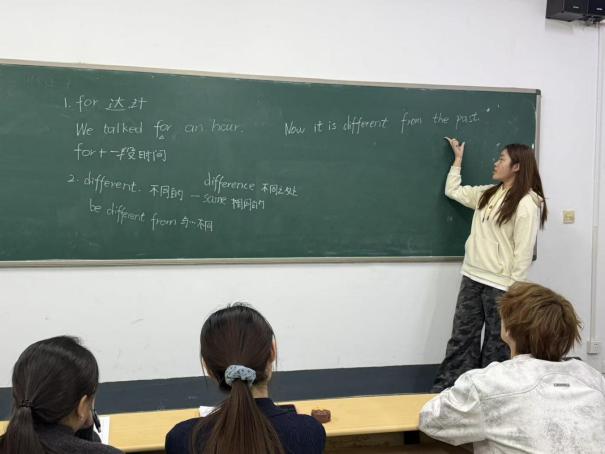 1. for 达 计
We talked for an hour.
for + 一段时间
2. different. 不同的 — same 相同的
difference 不同之处
be different from 与…不同
Now it is different from the past.